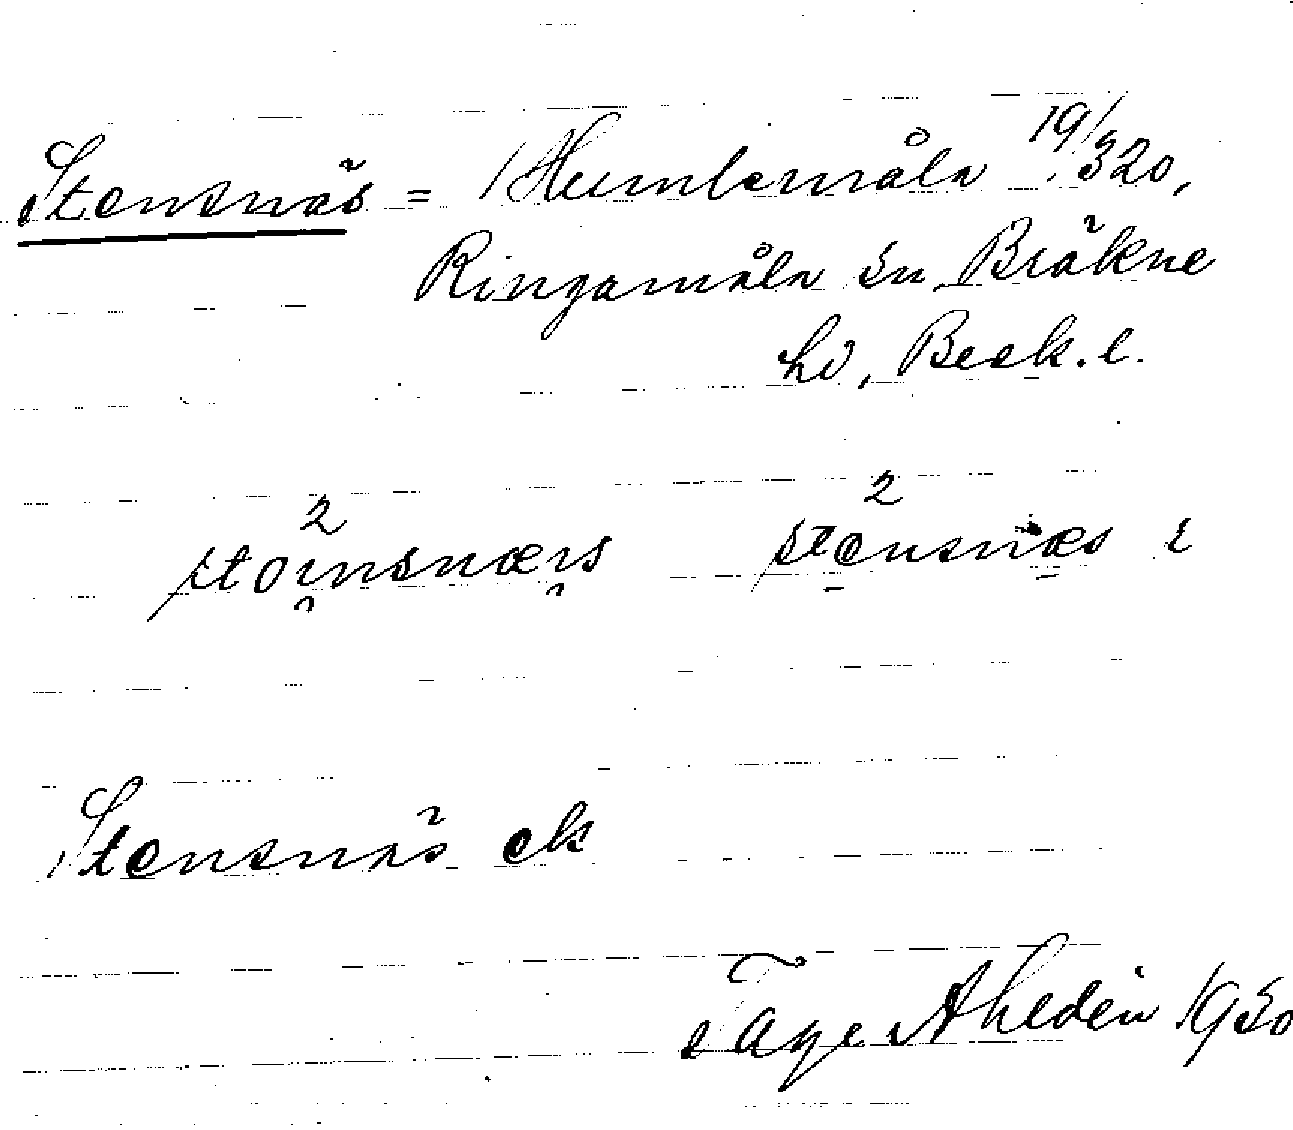 Stensnäs = Humlemåla 19/320,
Ringamåla sn, Bräkne
hd, Blek. l.
2 2
stoinsnæis stensnæs
Stensnäs ek
Tage Ahldén 1950